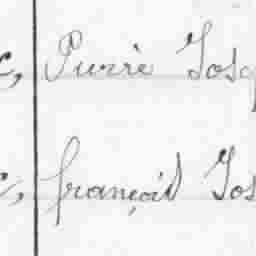 Pierre Jos
françois Jos